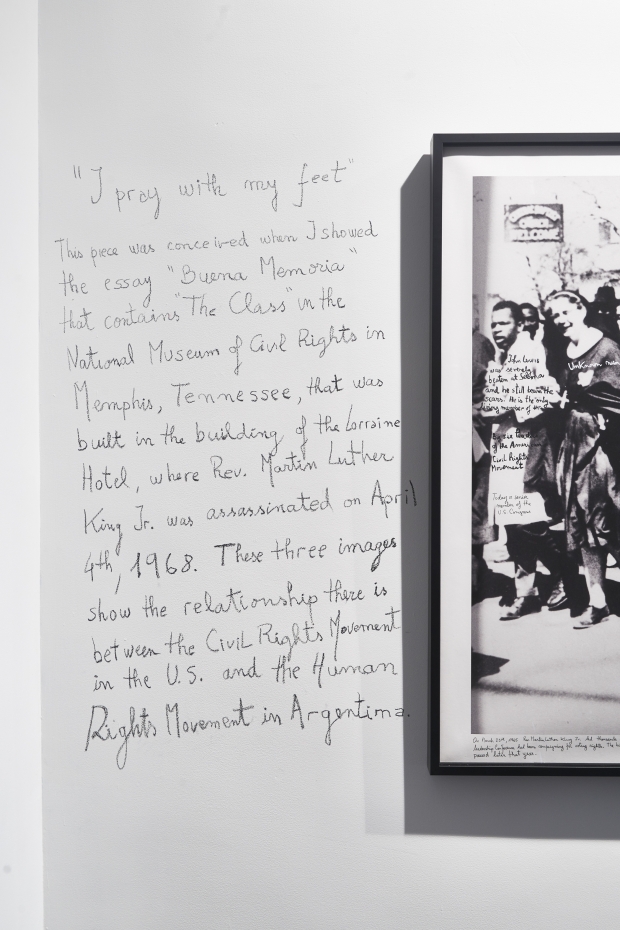 "I pray with my feet"
This piece was conceived when I showed
the essay "Buena Memoria"
that contains "The Class" in the
National Museum of Civil Rights in
Memphis, Tennessee, that was
built in the building of the Lorraine
Hotel, where Rev. Martin Luther
King Jr. was assassinated on April
4th, 1968. These three images
show the relationship there is
between the Civil Rights Movement
in the U.S. and the Human
Rights Movement in Argentina.
John Lewis
was severely
beaten at Selma
and he still bears the
scars. He is the only
Unknown nun
of the Ameri
Civil Rights
Movement
Today a senior
member of the
U.S. Congress
Rev Martin Luther King Jr. thousands
Leadership Conference had been campaigning for voting rights. The
passed later that year.